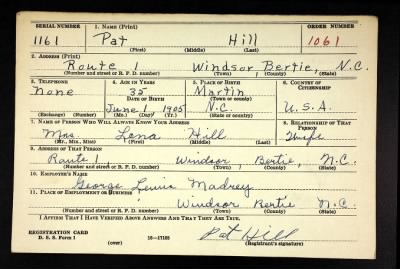 SERIAL NUMBER 1. NAME (Print) ORDER NUMBER
1161 Pat Hill 1061
(First) (Middle) (Last)
2. ADDRESS (Print)
Route 1 Windsor Bertie, N.C.
(Number and street or R. F. D. number) (Town) (County) (State)
3. TELEPHONE 4. AGE IN YEARS 5. PLACE OF BIRTH 6. COUNTRY OF CITIZENSHIP
None 35 Martin
DATE OF BIRTH (Town or county)
June 1 1905 N.C. U.S.A.
(Exchange) (Number) (Mo.) (Day) (Yr.) (State or country)
7. NAME OF PERSON WHO WILL ALWAYS KNOW YOUR ADDRESS 8. RELATIONSHIP OF THAT PERSON
Mrs. Lena Hill Wife
(Mr., Mrs., Miss) (First) (Middle) (Last)
9. ADDRESS OF THAT PERSON
Route 1, Windsor, Bertie, N.C.
(Number and street or R. F. D. number) (Town) (County) (State)
10. EMPLOYER'S NAME
George Lewis Madrey
11. PLACE OF EMPLOYMENT OR BUSINESS
Windsor Bertie N.C.
(Number and street or R. F. D. number) (Town) (County) (State)
I AFFIRM THAT I HAVE VERIFIED ABOVE ANSWERS AND THAT THEY ARE TRUE.
REGISTRATION CARD
D. S. S. Form 1 (over) 16—17105 Pat Hill
(Registrant's signature)